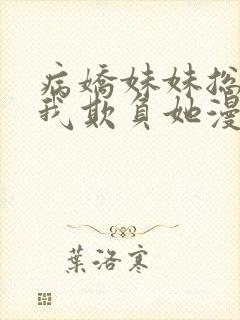 病嬌妹妹總
我欺負她漫
葉洛寒